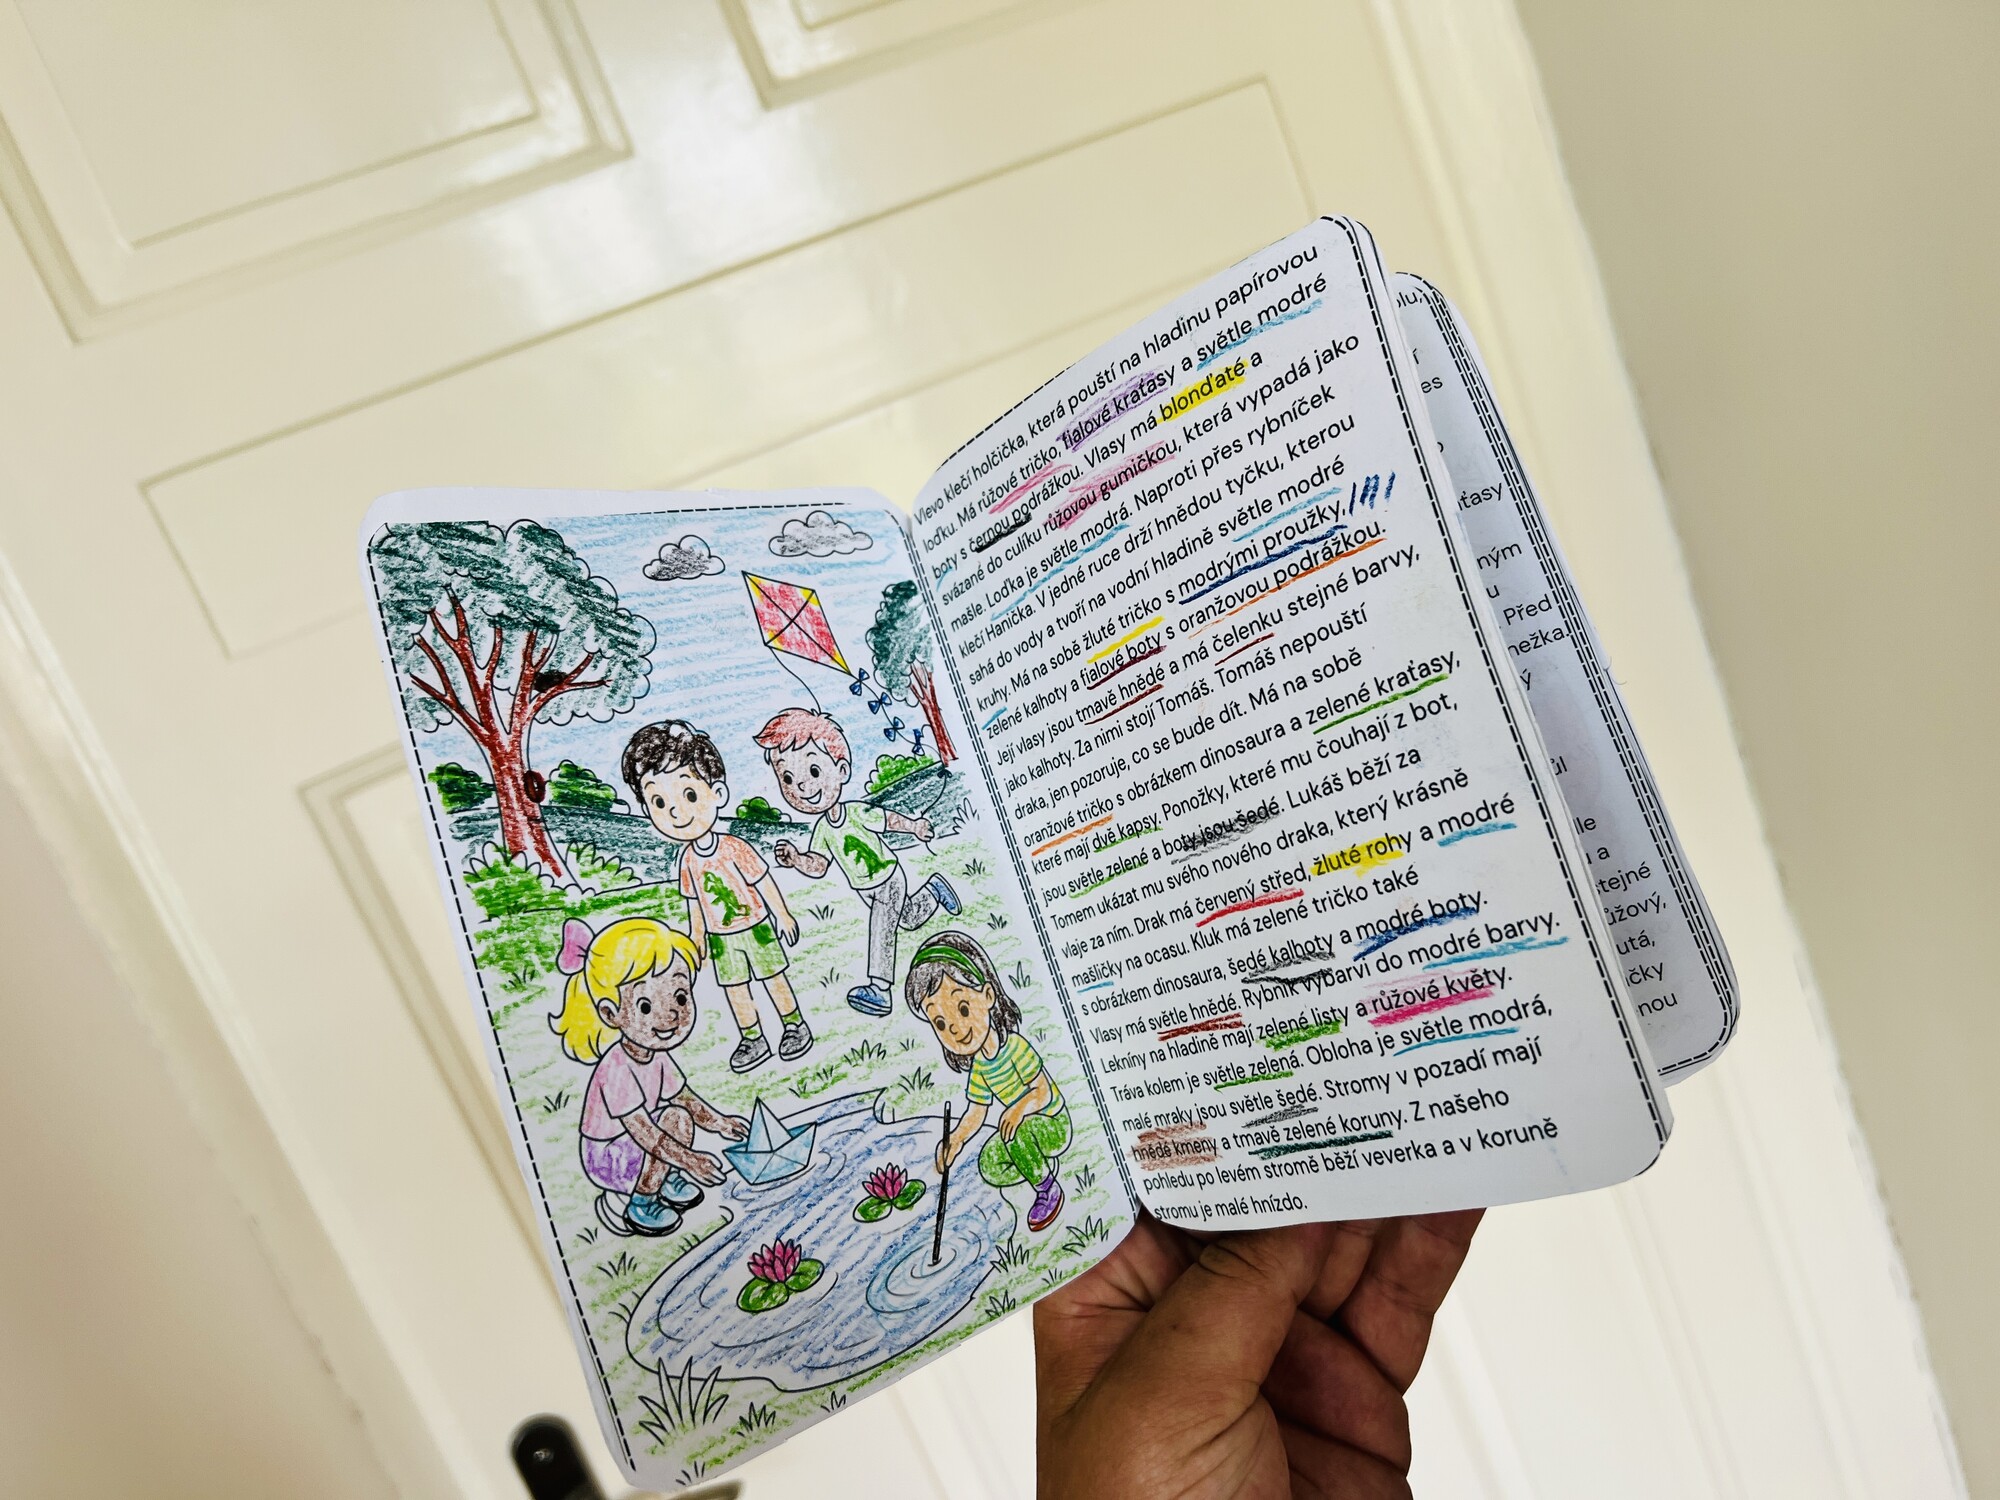 Vlevo klečí holčička, která pouští na hladinu papírovou
loďku. Má růžové tričko, fialové kraťasy a světle modré
boty s černou podrážkou. Vlasy má blonďaté a
svázané do culíku růžovou gumičkou, která vypadá jako
mašle. Loďka je světle modrá. Naproti přes rybníček
klečí Hanička. V jedné ruce drží hnědou tyčku, kterou
sahá do vody a tvoří na vodní hladině světle modré
kruhy. Má na sobě žluté tričko s modrými proužky,
zelené kalhoty a fialové boty s oranžovou podrážkou.
Její vlasy jsou tmavě hnědé a má čelenku stejné barvy,
jako kalhoty. Za nimi stojí Tomáš. Tomáš nepouští
draka, jen pozoruje, co se bude dít. Má na sobě
oranžové tričko s obrázkem dinosaura a zelené kraťasy,
které mají dvě kapsy. Ponožky, které mu čouhají z bot,
jsou světle zelené a boty jsou šedé. Lukáš běží za
Tomem ukázat mu svého nového draka, který krásně
vlaje za ním. Drak má červený střed, žluté rohy a modré
mašličky na ocasu. Kluk má zelené tričko také
s obrázkem dinosaura, šedé kalhoty a modré boty.
Vlasy má světle hnědé. Rybník vybarvi do modré barvy.
Lekníny na hladině mají zelené listy a růžové květy.
Tráva kolem je světle zelená. Obloha je světle modrá,
malé mraky jsou světle šedé. Stromy v pozadí mají
hnědé kmeny a tmavě zelené koruny. Z našeho
pohledu po levém stromě běží veverka a v koruně
stromu je malé hnízdo.
es
ťasy
ným
u
Před
nežka.
ý
a
stejné
ůžový,
utá,
ičky
nou